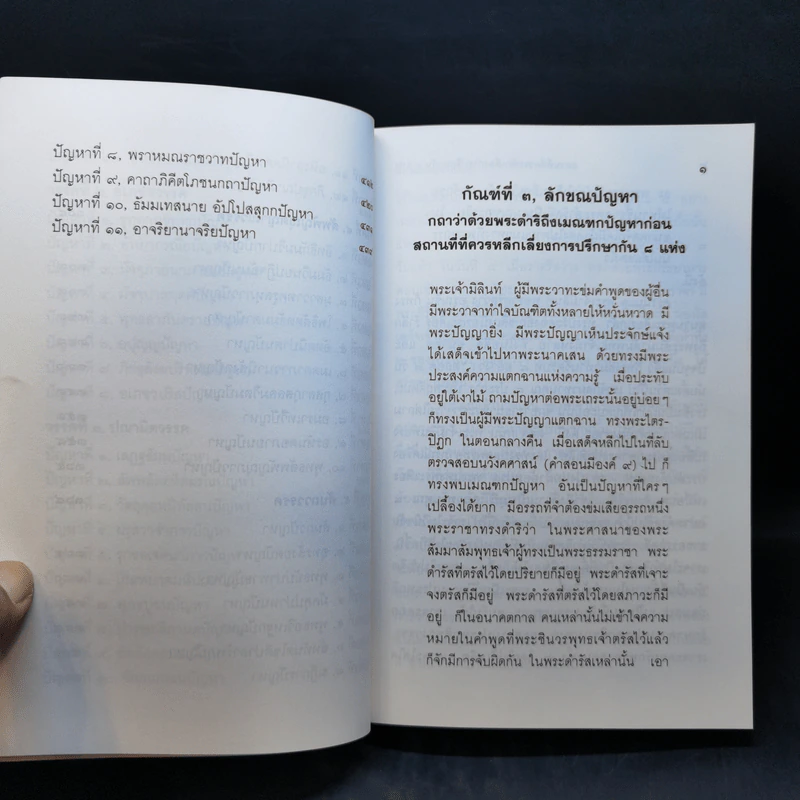 ปัญหาที่ ๘, พราหมณราชวาทปัญหา
ปัญหาที่ ๙, คาถาภิคีตโภชนกถาปัญหา
ปัญหาที่ ๑๐, ธัมมเทสนาย อัปโปสสุกกปัญหา
ปัญหาที่ ๑๑, อาจริยานาจริยปัญหา
๑
กัณฑ์ที่ ๓, ลักขณปัญหา
กถาว่าด้วยพระดำริถึงเมณฑกปัญหาก่อน
สถานที่ที่ควรหลีกเลี่ยงการปรึกษากัน ๘ แห่ง
พระเจ้ามิลินท์ ผู้มีพระวาทะข่มคำพูดของผู้อื่น
มีพระวาจาทำใจบัณฑิตทั้งหลายให้หวั่นหวาด มี
พระปัญญายิ่ง มีพระปัญญาเห็นประจักษ์แจ้ง
ได้เสด็จเข้าไปหาพระนาคเสน ด้วยทรงมีพระ
ประสงค์ความแตกฉานแห่งความรู้ เมื่อประทับ
อยู่ใต้เงาไม้ ถามปัญหาต่อพระเถระนั้นอยู่บ่อยๆ
ก็ทรงเป็นผู้มีพระปัญญาแตกฉาน ทรงพระไตร-
ปิฎก ในตอนกลางคืน เมื่อเสด็จหลีกไปในที่ลับ
ตรวจสอบนวังคศาสน์ (คำสอนมีองค์ ๙) ไป ก็
ทรงพบเมณฑกปัญหา อันเป็นปัญหาที่ใครๆ
เปลื้องได้ยาก มีอรรถที่จำต้องข่มเสียอรรถหนึ่ง
พระราชาทรงดำริว่า ในพระศาสนาของพระ
สัมมาสัมพุทธเจ้าผู้ทรงเป็นพระธรรมราชา พระ
ดำรัสที่ตรัสไว้โดยปริยายก็มีอยู่ พระดำรัสที่เจาะ
จงตรัสก็มีอยู่ พระดำรัสที่ตรัสไว้โดยสภาวะก็มี
อยู่ ก็ในอนาคตกาล คนเหล่านั้นไม่เข้าใจความ
หมายในคำพูดที่พระชินวรพุทธเจ้าตรัสไว้แล้ว
ก็จักมีการจับผิดกัน ในพระดำรัสเหล่านั้น เอา